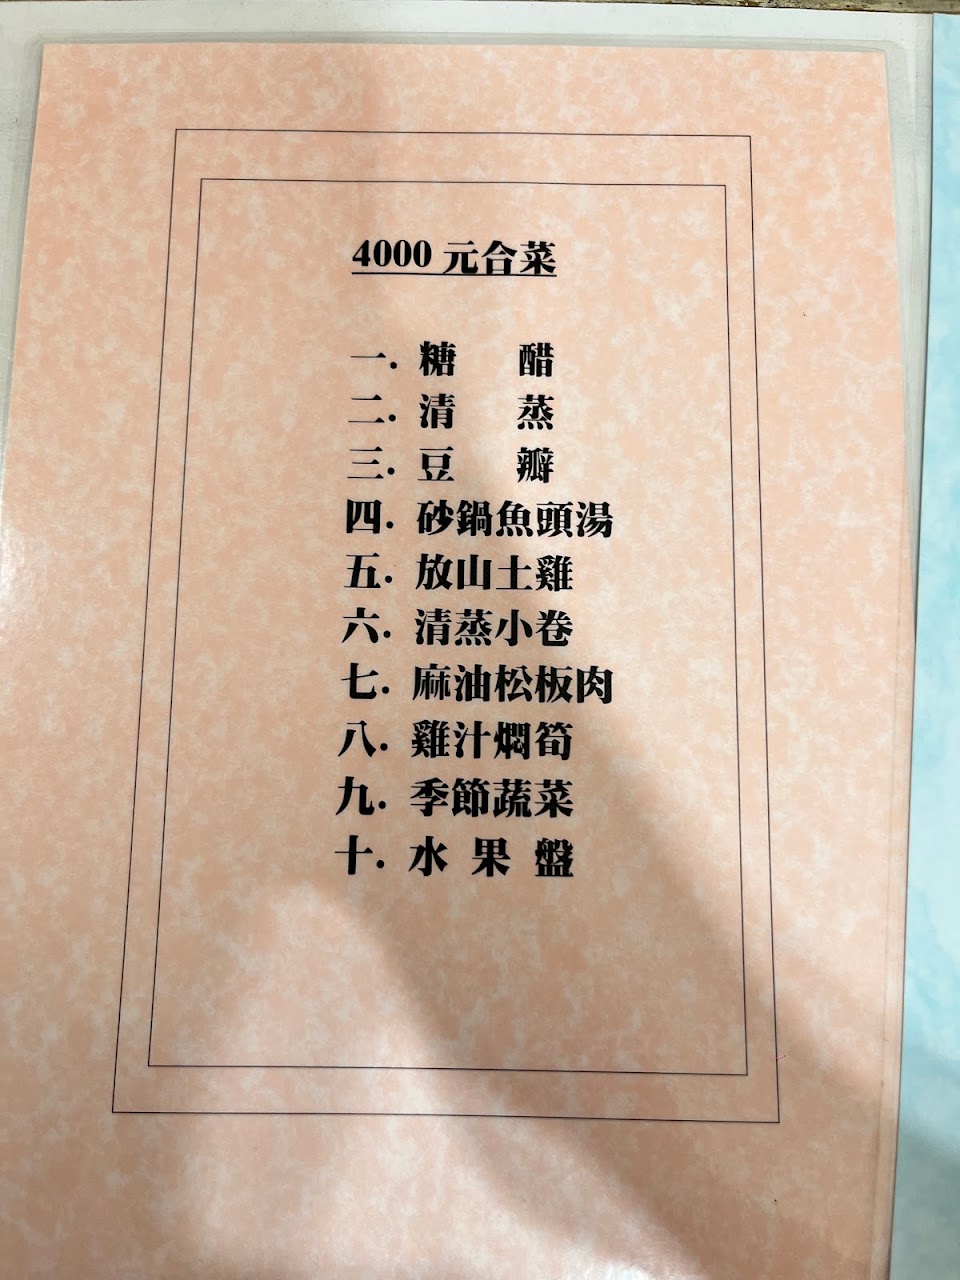 4000 元合菜
一. 糖 醋
二. 清 蒸
三. 豆 瓣
四. 砂鍋魚頭湯
五. 放山土雞
六. 清蒸小卷
七. 麻油松板肉
八. 雞汁燜筍
九. 季節蔬菜
十. 水 果 盤